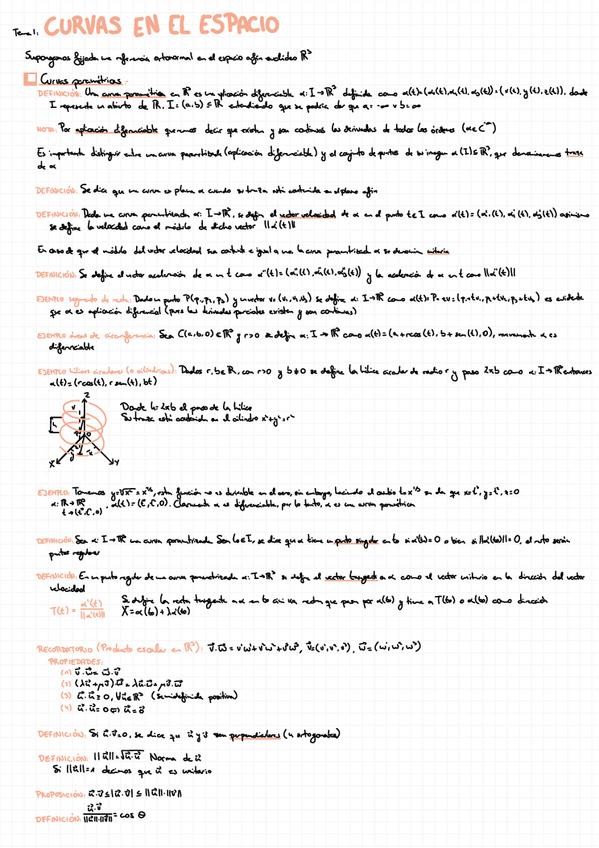 Tema 1: CURVAS EN EL ESPACIO
Supongamos fijada una referencia ortonormal en el espacio afín euclídeo R³
Curvas paramétricas
DEFINICIÓN: Una curva paramétrica en R³ es una aplicación diferenciable α: I→R³ definida como α(t)=(α₁(t),α₂(t),α₃(t))=(x(t),y(t),z(t)), donde
I representa un abierto de R, I=(a,b)⊆R entendiendo que se podría dar que a=-∞ v b=∞
NOTA: Por aplicación diferenciable queremos decir que existen y son continuas las derivadas de todos los órdenes (α∈C^∞)
Es importante distinguir entre una curva parametrizada (aplicación diferenciable) y el conjunto de puntos de su imagen α(I)⊆R³, que denominaremos traza
de α
DEFINICIÓN: Se dice que una curva es plana cuando su traza está contenida en el plano afín
DEFINICIÓN: Dada una curva parametrizada α: I→R³, se define el vector velocidad de α en el punto t∈I como α'(t)=(α₁'(t),α₂'(t),α₃'(t)) asimismo
se define la velocidad como el módulo de dicho vector ||α'(t)||
En caso de que el módulo del vector velocidad sea constante e igual a uno la curva parametrizada α se denomina unitaria
DEFINICIÓN: Se define el vector aceleración de α en t como α''(t)=(α₁''(t),α₂''(t),α₃''(t)) y la aceleración de α en t como ||α''(t)||
EJEMPLO segmento de recta: Dado un punto P(p₁,p₂,p₃) y un vector v=(v₁,v₂,v₃) se define α: I→R³ como α(t)=P+tv=(p₁+tv₁,p₂+tv₂,p₃+tv₃) es evidente
que α es aplicación diferencial (pues las derivadas parciales existen y son continuas)
EJEMPLO áreas de circunferencia: Sea C(a,b,0)∈R³ y r>0 se define α: I→R³ como α(t)=(a+rcos(t), b+sen(t),0), nuevamente α es
diferenciable
EJEMPLO hélices circulares (o cilíndricas): Dados r,b∈R, con r>0 y b≠0 se define la hélice circular de radio r y paso 2πb como α: I→R³ entonces
α(t)=(rcos(t), rsen(t), bt)
Z
Donde h=2πb el paso de la hélice
Su traza está contenida en el cilindro x²+y²=r²
h
X
Y
EJEMPLO: Tomemos
esta función no es derivable en el cero, sin embargo, haciendo el cambio
se da que x=t³, y=t², z=0
α: R→R³
t→(t³,t²,0), α(t)=(t³,t²,0). Claramente α es diferenciable, por lo tanto, α es una curva paramétrica
DEFINICIÓN: Sea α: I→R³ una curva parametrizada. Sea t₀∈I, se dice que α tiene un punto singular en t₀ si α'(t₀)=0 o bien si ||α'(t₀)||=0, el resto serán
puntos regulares
DEFINICIÓN: En un punto regular de una curva parametrizada α: I→R³ se define el vector tangente a α como el vector unitario en la dirección del vector
velocidad
T(t)= α'(t)/||α'(t)|| Se define la recta tangente a α en t₀ como la recta que pasa por α(t₀) y tiene a T(t₀) o α'(t₀) como dirección
X=α(t₀)+λα'(t₀)
RECORDATORIO (Producto escalar en R³): v·w=v¹w¹+v²w²+v³w³, v=(v¹,v²,v³), w=(w¹,w²,w³)
PROPIEDADES:
(1) v·w=w·v
(2)
(3) u·u≥0, ∀u∈R³ (Semidefinida positiva)
(4) u·u=0⇔u=0
DEFINICIÓN: Si u·v=0, se dice que u y v son perpendiculares (u ortogonales)
DEFINICIÓN: ||u||=√u·u Norma de u
Si ||u||=1 decimos que u es unitario
PROPOSICIÓN: u·v≤|u·v|≤||u||·||v||
DEFINICIÓN: u·v/||u||·||v||=cos θ